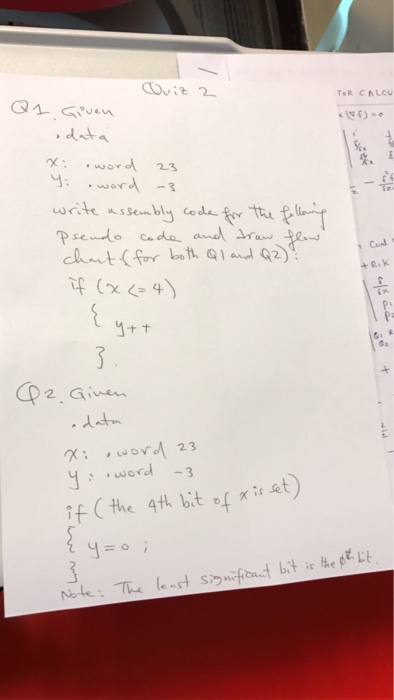 Quiz 2
Q1. Given
.data
x: .word 23
y: .word -3
write assembly code for the following
pseudo code and draw flow
chart (for both Q1 and Q2):
if (x <= 4)
{
y++
}.
Q2. Given
.data
x: .word 23
y: .word -3
if (the 4th bit of x is set)
{ y=0;
}
Note: The least significant bit is the 0th bit.
TOR CALCU